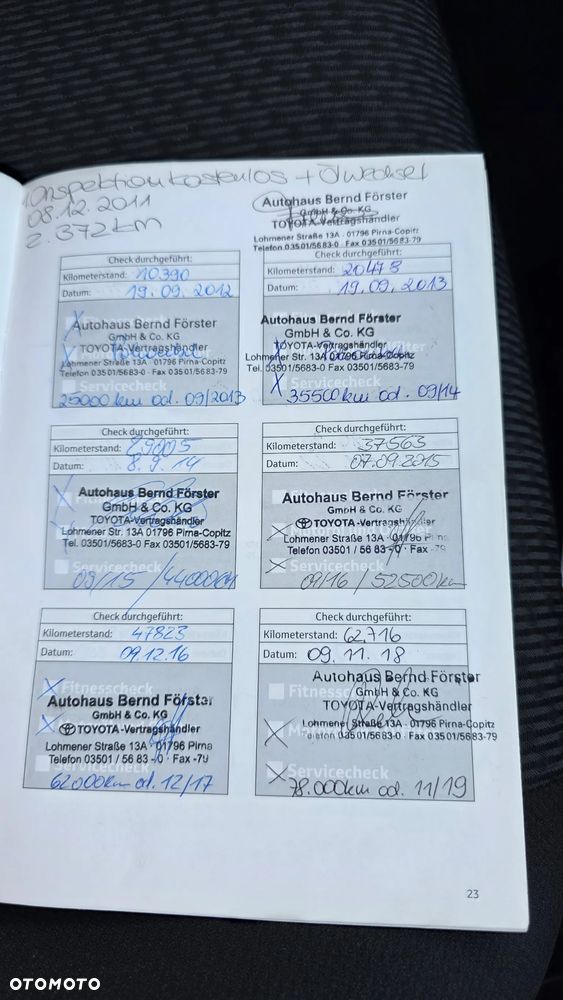 1. Inspektion kostenlos + Ölwechsel
08.12.2011
2.372 km
Autohaus Bernd Förster
GmbH & Co. KG
TOYOTA-Vertragshändler
Lohmener Straße 13A · 01796 Pirna-Copitz
Telefon 03501/5683-0 · Fax 03501/5683-79
Check durchgeführt:
Kilometerstand: 10.390
Datum: 19.09.2012
Autohaus Bernd Förster
GmbH & Co. KG
TOYOTA-Vertragshändler
Lohmener Straße 13A · 01796 Pirna-Copitz
Telefon 03501/5683-0 · Fax 03501/5683-79
Servicecheck
25000 km od. 09/2013
Check durchgeführt:
Kilometerstand: 20478
Datum: 19.09.2013
Autohaus Bernd Förster
GmbH & Co. KG
TOYOTA-Vertragshändler
Lohmener Str. 13A 01796 Pirna-Copitz
Tel. 03501/5683-0 Fax 03501/5683-79
Servicecheck
35500 km od. 09/14
Check durchgeführt:
Kilometerstand: 29005
Datum: 8.9.14
Autohaus Bernd Förster
GmbH & Co. KG
TOYOTA-Vertragshändler
Lohmener Str. 13A 01796 Pirna-Copitz
Tel. 03501/5683-0 Fax 03501/5683-79
Servicecheck
09/15 / 44000km
Check durchgeführt:
Kilometerstand: 37563
Datum: 07.09.2015
Autohaus Bernd Förster
GmbH & Co. KG
TOYOTA-Vertragshändler
Lohmener Straße 13A · 01796 Pirna
Telefon 03501 / 56 83 -0 · Fax -79
Servicecheck
09/16 / 52500km
Check durchgeführt:
Kilometerstand: 47823
Datum: 09.12.16
Fitnesscheck
Autohaus Bernd Förster
GmbH & Co. KG
TOYOTA-Vertragshändler
Lohmener Straße 13A · 01796 Pirna
Telefon 03501 / 56 83 -0 · Fax -79
Servicecheck
62000km od. 12/17
Check durchgeführt:
Kilometerstand: 62.716
Datum: 09.11.18
Autohaus Bernd Förster
Fitnesscheck
GmbH & Co. KG
TOYOTA-Vertragshändler
Lohmener Straße 13A · 01796 Pirna-Copitz
Telefon 03501/5683-0 · Fax 03501/5683-79
Servicecheck
78.000km od. 11/19
23
OTOMOTO